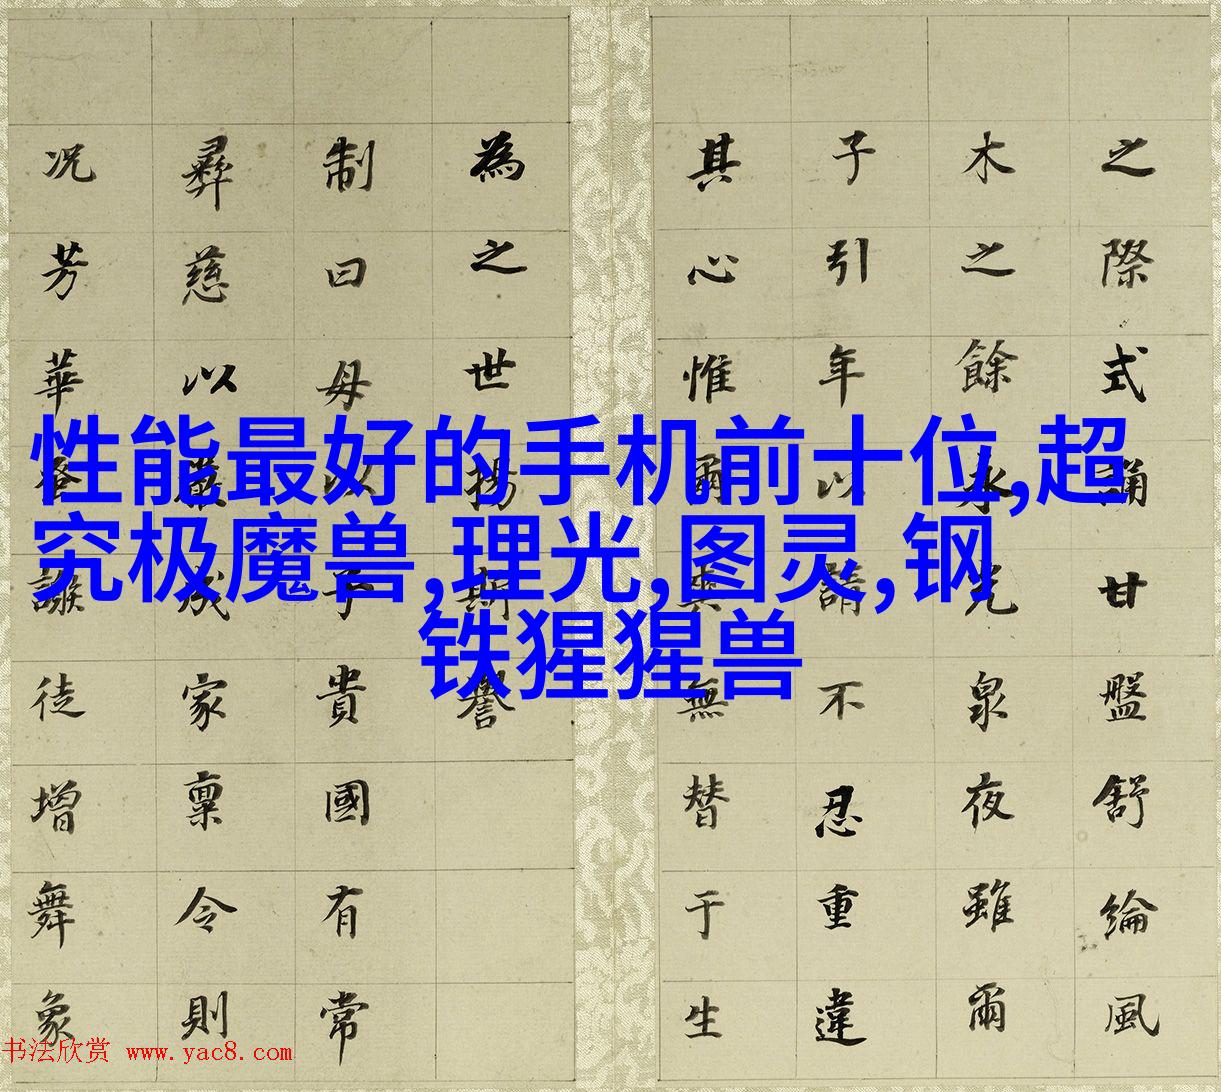 性能最好的手机前十位,超
究极魔兽,理光,图灵,钢
铁猩猩兽
之際式甘盤舒綸風
木之餘泉夜雖爾
子引年以請不忍重違
其心惟爾奭無替于生
為之世揚斯譽
制曰母以子貴國有常
彝慈以嚴成家稟令則
况芳華徒增舞象
书法欣赏 www.yac8.com